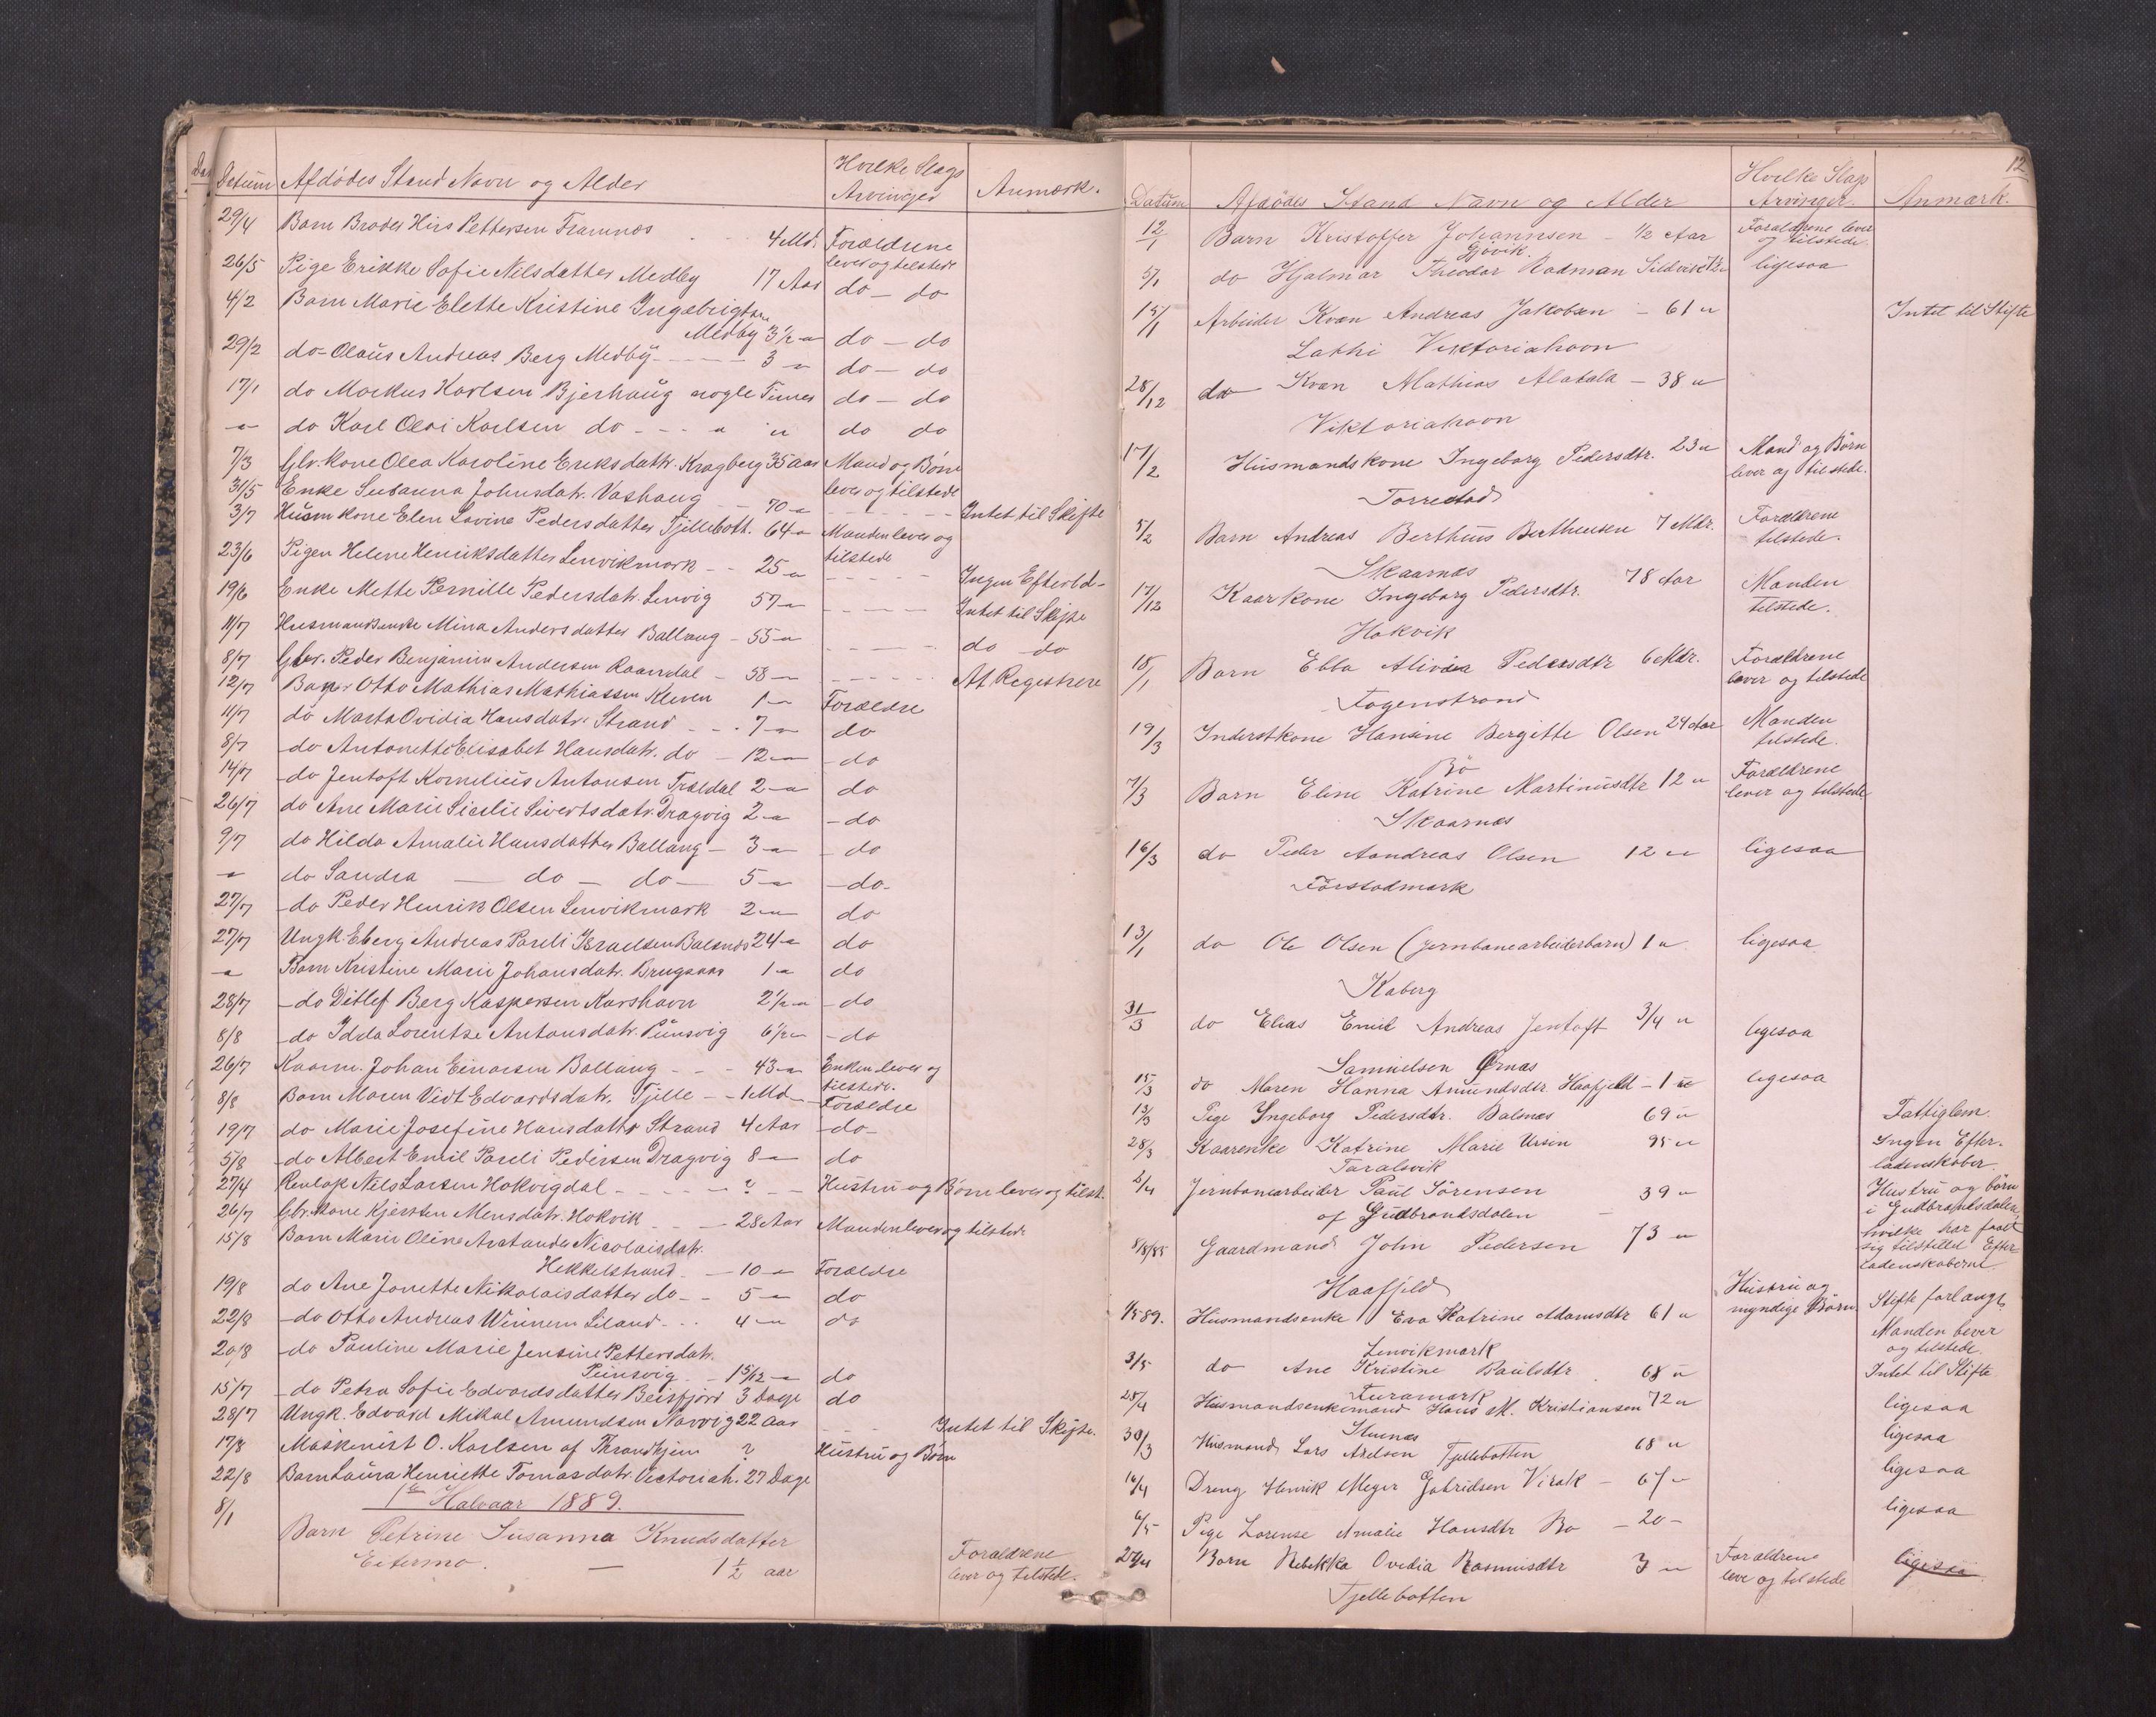 Datum Afdødes Stand Navn og Alder Hvilke Slags Arvinger Anmærk.
29/4 Barn Broder Hirs Pettersen Framnæs 4 Md. Forældrene lever og tilstede
26/5 Pige Erikke Sofie Nilsdatter Medby 17 Aar do — do
4/2 Barn Marie Elette Kristine Ingebrigtsen
Medby 3 1/2 " do — do
29/2 do Olaus Andreas Berg Medby 3 " do — do
17/1 do Markus Karlsen Bjerhaug nogle Timer do — do
" do Karl Olai Karlsen do " " do do
7/3 Gbr. kone Olea Karoline Eriksdatr. Kragberg 35 Aar Mand og Børn lever og tilstede
31/5 Enke Susanna Johnsdatr. Vashaug 70 " Intet til Skifte
3/7 Husm kone Elen Lovine Pedersdatter Fjellebott. 64 " Manden lever og tilstede
23/6 Pigen Helene Henriksdatter Lenvikmark 25 " Ingen Efterld-
19/6 Enke Mette Pernille Pedersdatr. Lenvig 57 " Intet til Skifte
11/7 Husmandsenke Mina Andersdatter Ballang 55 " do do
8/7 Gbr. Peder Benjamin Andersen Raandal 58 " At Registrere
12/7 Barn Otto Mathias Mathiassen Kleven 1 " Forældre
11/7 do Marta Ovidia Hansdatr. Strand 7 " do
8/7 do Antonette Elisabet Hansdatr. do 12 " do
14/7 do Jentoft Kornelius Antonsen Trældal 2 " do
26/7 do Ane Marie Sicilie Sivertsdatr. Dragvig 2 " do
9/7 do Hilda Amalie Hansdatter Ballang 3 " do
" do Sandra — do — do — 5 " do
27/7 do Peder Henrik Olsen Lenvikmark 2 " do
27/7 Ungk. Eberg Andreas Pareli Israelsen Balsnæs 24 " do
" Barn Kristine Marie Johansdatr. Brugsaas 1 " do
28/7 do Ditlef Berg Kaspersen Karshavn 2 1/2 " do
8/8 do Idda Lorentze Antonsdatr. Pünsvig 6 1/2 " do
26/7 Kaarm. Johan Einarsen Ballang 43 " Enken lever og tilstede.
8/8 Barn Maren Vidt Edvardsdatr. Fjelle 1 Md Forældre
19/7 do Marie Josefine Hansdattr Strand 4 Aar do
5/8 do Albert Emil Pareli Pedersen Dragvig 8 " do
27/4 Nils Larsen Hokvigdal ? Hustru og Børn lever og tilst.
26/7 Gbr. kone Kjersten Mensdatr. Hokvik 28 Aar Manden lever og tilstede
15/8 Barn Marie Oline Nicolaisdatr.
Hekkelstrand 10 " Forældre
19/8 do Ane Jonette Nikolaisdatter do 5 " do
22/8 do Otto Andreas Winnem Liland 4 " do
20/8 do Pauline Marie Jensine Pettersdatr.
Pünsvig 1 5/12 " do
15/7 do Petra Sofie Edvardsdatter Beisfjord 3 Dage do
28/7 Ungk. Edvard Mikal Amundsen Narvig 22 Aar Intet til Skifte.
17/8 Maskinist O. Karlsen af Thrandhjem ? Hustru og Børn
22/8 Barn Laura Henriette Tomasdatr. Victoriah. 27 Dage
1ste Halvaar 1889.
8/1 Barn Petrine Susanna Knudsdatter
Eitermo. — 1 1/2 aar Forældrene lever og tilstede.
12
Datum Afdødes Stand Navn og Alder Hvilke Slags Arvinger. Anmærk.
12/1 Barn Kristoffer Johannsen 1/2 Aar Forældrene lever og tilstede.
Gjövik.
5/1 do Hjalmar Theodor Rodman Sildvik ligesaa
15/1 Arbeider Kvæn Andreas Jakobsen 61 " Intet til Skifte
Lathi Viktoriahavn
28/12 do Kvæn Mathias Alatala 38 "
Viktoriahavn
17/2 Husmandskone Ingeborg Pedersdtr. 23 " Mand og Börn lever og tilstede.
Torrestad
5/2 Barn Andreas Berthus Bertheusen 7 Mdr. Forældrene tilstede.
Skaarnæs
17/12 Kaarkone Ingeborg Pedersdtr. 78 Aar Manden tilstede.
Hokvik
18/1 Barn Ebba Alivia Pedersdtr 6 Mdr. Forældrene lever og tilstede
Fagenstrand
19/3 Inderstkone Hansine Bergitte Olsen 24 Aar Manden tilstede.
Bö
7/3 Barn Eline Katrine Martinusdtr 12 " Forældrene lever og tilstede
Skaarnæs
16/3 do Peder Aandreas Olsen 12 " ligesaa
Forstadmark
13/1 do Ole Olsen (jernbanearbeiderbarn) 1 " ligesaa
Kaberg
31/3 do Elias Emil Andreas Jentoft 3/4 " ligesaa
Samuelsen Ørnæs
15/3 do Maren Hanna Amundsdtr Haafjeld 1 " ligesaa
13/3 Pige Ingeborg Pedersdtr. Balsnæs 69 " Fattiglem.
28/3 Kaarenke Katrine Marie Ursin 95 " Ingen Efter-
Taralsvik ladenskaber.
2/4 Jernbanearbeider Paul Sörensen 39 " Hustru og börn
af Gudbrandsdalen i Gudbrandsdalen,
hvilke har faaet
sig tilstillet Efter-
ladenskaberne
8/8/88 Gaardmand John Pedersen 73 "
Haafjeld Hustru og myndige Börn. Skifte forlangt
1/5 89. Husmandsenke Eva Katrine Adamsdtr 61 " Manden lever og tilstede.
Lenvikmark
3/5 do Ane Kristine Paulsdtr 68 " Intet til Skifte
Furamark
25/4 Husmandsenkemand Hans M. Kristiansen 72 " ligesaa
30/3 Husmand Lars Axelsen Fjellebotten 68 " ligesaa
16/4 Dreng Henrik Meyer Gabrielsen Virak 67 " ligesaa
6/5 Pige Lorense Amalie Hansdtr Bö 20 - ligesaa
25/4 Barn Rebekka Ovedia Rasmusdtr 3 " Forældrene leve og tilstede ligesaa
Fjellebotten